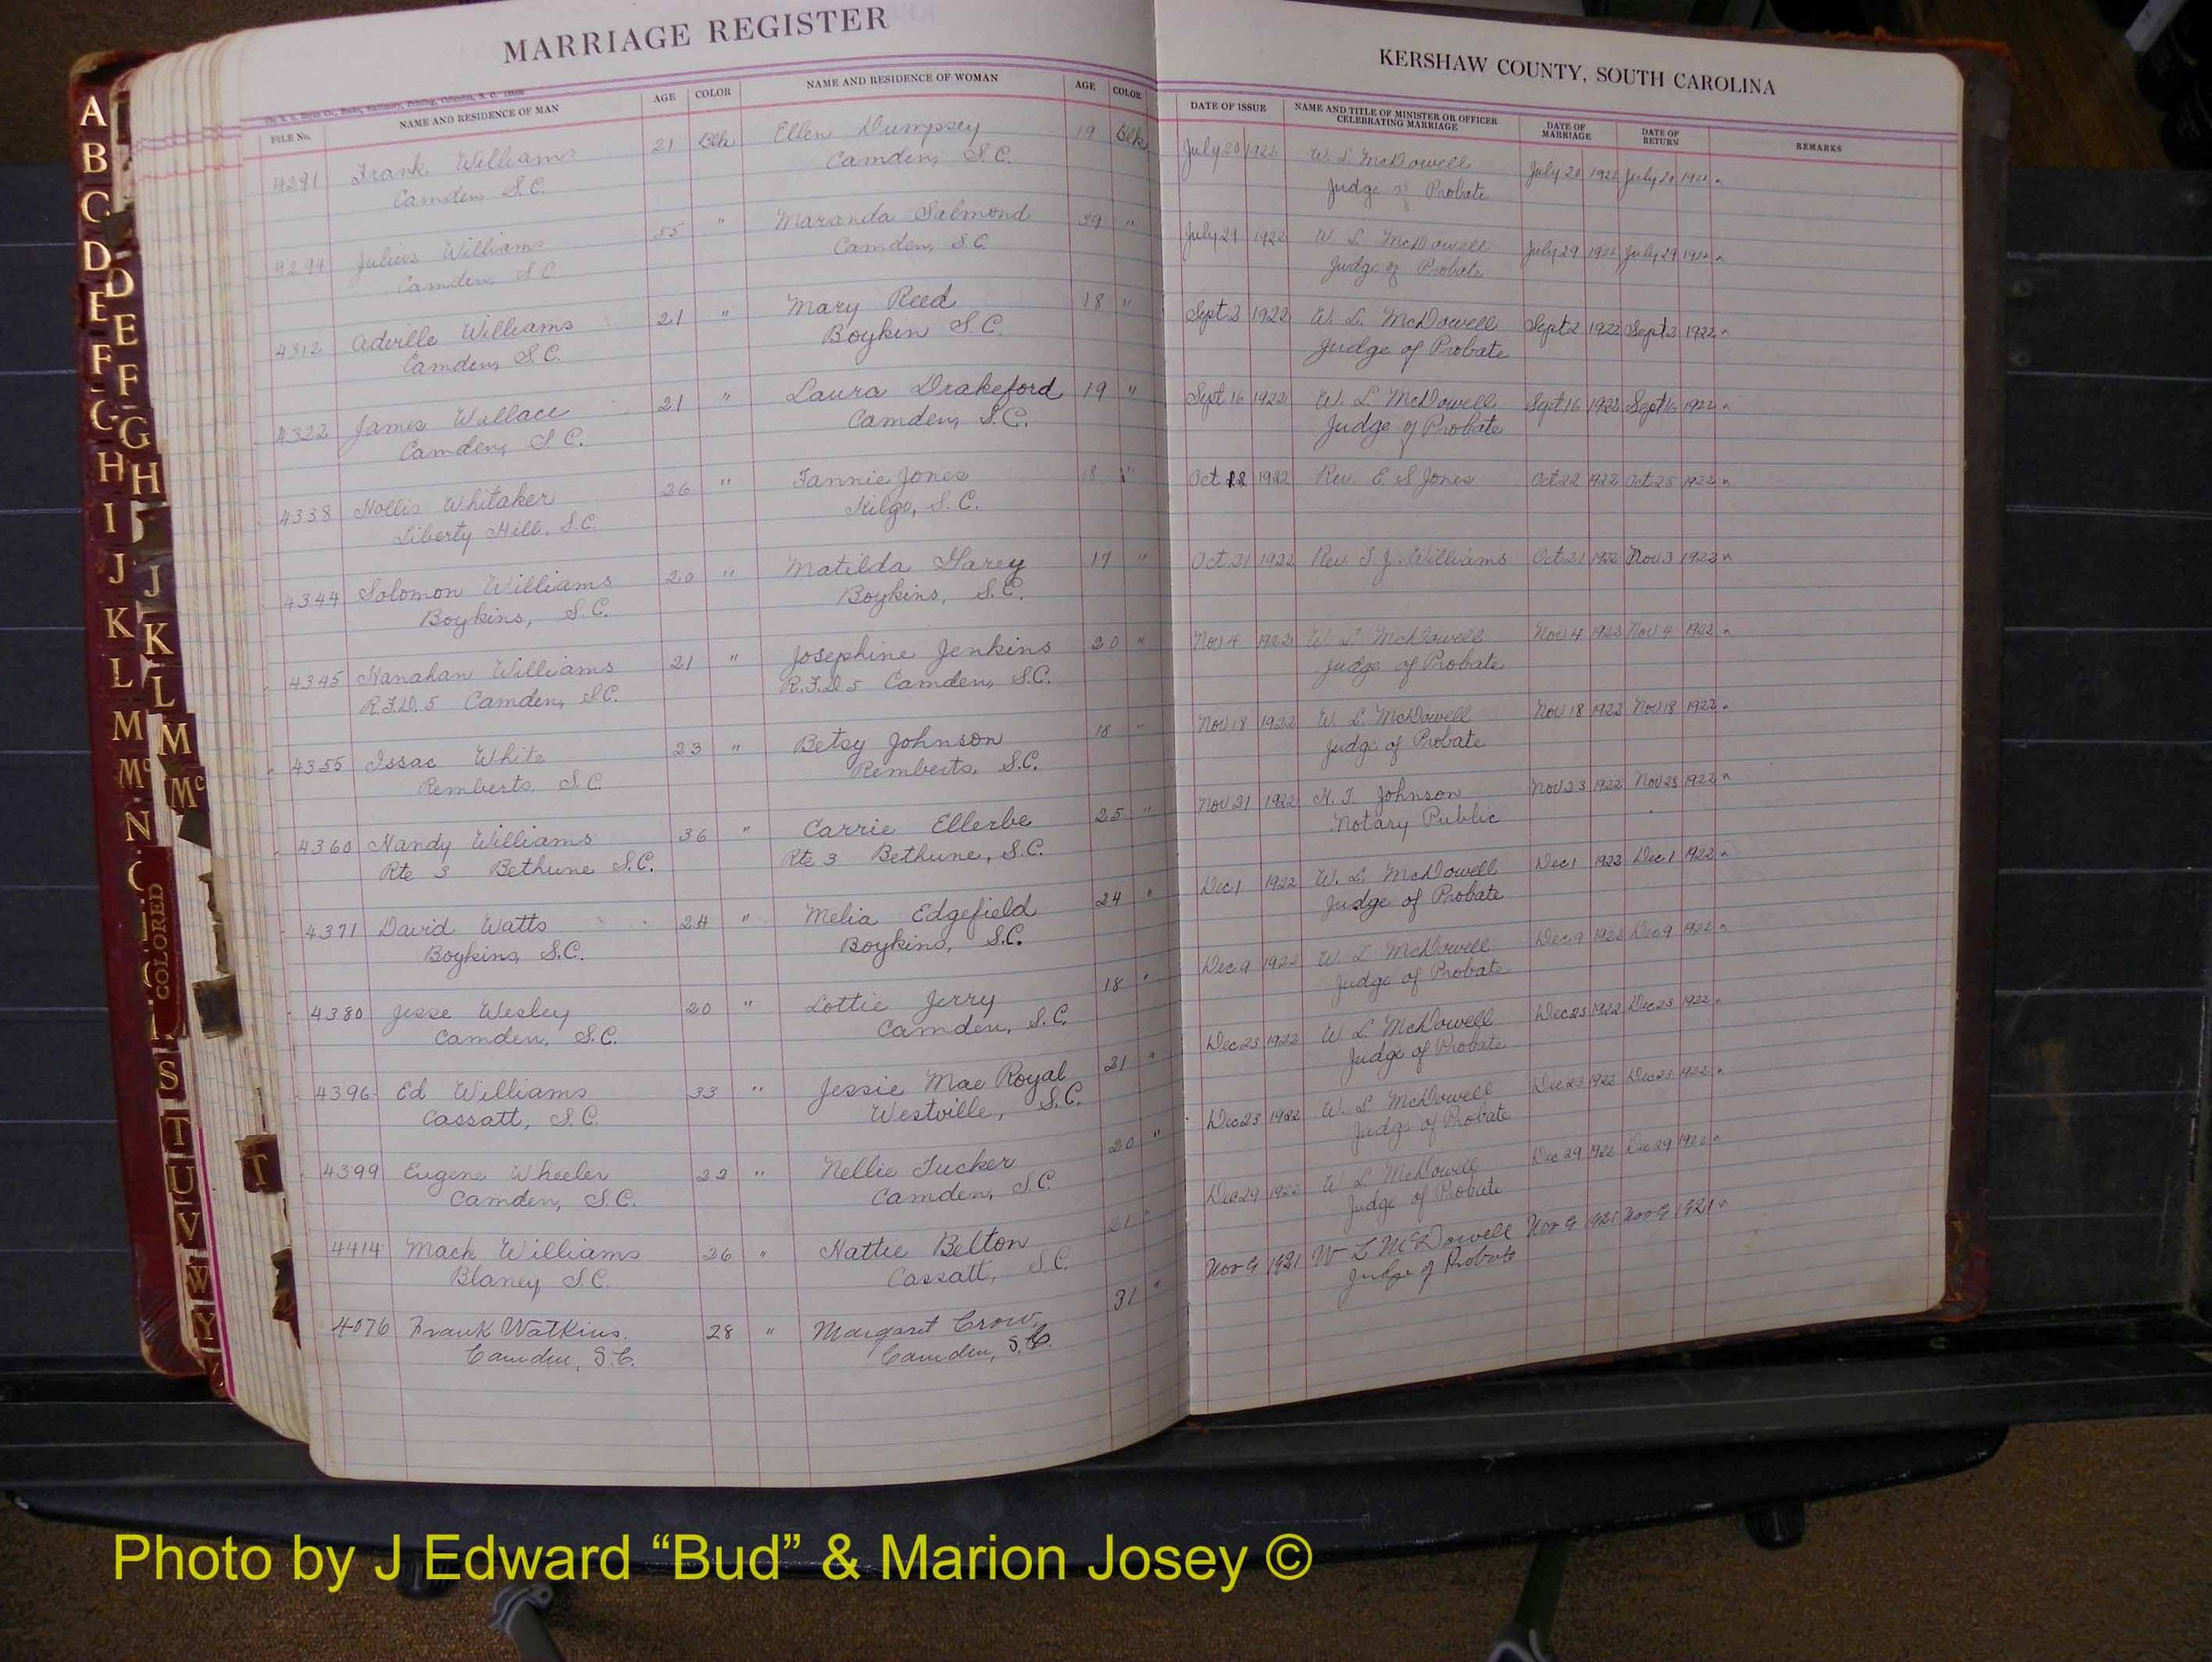 MARRIAGE REGISTER
KERSHAW COUNTY, SOUTH CAROLINA
FILE No. NAME AND RESIDENCE OF MAN AGE COLOR NAME AND RESIDENCE OF WOMAN AGE COLOR DATE OF ISSUE NAME AND TITLE OF MINISTER OR OFFICER CELEBRATING MARRIAGE DATE OF MARRIAGE DATE OF RETURN REMARKS
4291 Frank Williams 21 Blk Ellen Dumpsey 19 Blk July 20 1922 W. L. McDowell July 20 1922 July 20 1922
Camden S.C. Camden, S.C. Judge of Probate
4294 Julius Williams 55 " Maranda Salmond 39 " July 29 1922 W. L. McDowell July 29 1922 July 29 1922
Camden, S.C. Camden, S.C. Judge of Probate
4312 Adville Williams 21 " Mary Reed 18 " Sept 2 1922 W. L. McDowell Sept 2 1922 Sept 2 1922
Camden, S.C. Boykin S.C. Judge of Probate
4322 James Wallace 21 " Laura Drakeford 19 " Sept 16 1922 W. L. McDowell Sept 16 1922 Sept 16 1922
Camden, S.C. Camden, S.C. Judge of Probate
4338 Hollis Whitaker 26 " Fannie Jones 18 " Oct 1922 Rev. E. S. Jones Oct 22 1922 Oct 25 1922
Liberty Hill, S.C. Kilgo, S.C.
4344 Solomon Williams 20 " Matilda Garey 17 " Oct 21 1922 Rev. Williams Oct 21 1922 Nov 3 1922
Boykins, S.C. Boykins, S.C.
4345 Hanahan Williams 21 " Josephine Jenkins 20 " Nov 4 1922 W. L. McDowell Nov 4 1922 Nov 4 1922
R.F.D. 5 Camden, S.C. R.F.D. 5 Camden, S.C. Judge of Probate
4355 Issac White 23 " Betsy Johnson 18 " Nov 18 1922 W. L. McDowell Nov 18 1922 Nov 18 1922
Remberts, S.C. Remberts, S.C. Judge of Probate
4360 Handy Williams 36 " Carrie Ellerbe 25 " Nov 21 1922 Johnson Nov 23 1922 Nov 28 1922
Rte 3 Bethune S.C. Rte 3 Bethune, S.C. Notary Public
4371 David Watts 24 " Melia Edgefield 24 " Dec 1 1922 W. L. McDowell Dec 1 1922 Dec 1 1922
Boykins, S.C. Boykins, S.C. Judge of Probate
4380 Jesse Wesley 20 " Lottie Jerry 18 " Dec 9 1922 W. L. McDowell Dec 9 1922 Dec 9 1922
Camden, S.C. Camden, S.C. Judge of Probate
4396 Ed Williams 33 " Jessie Mae Royal 21 " Dec 23 1922 W. L. McDowell Dec 23 1922 Dec 23 1922
Cassatt, S.C. Westville, S.C. Judge of Probate
4399 Eugene Wheeler 22 " Nellie Tucker 20 " Dec 23 1922 W. L. McDowell Dec 23 1922 Dec 23 1922
Camden, S.C. Camden, S.C. Judge of Probate
4414 Mack Williams 26 " Hattie Belton 21 " Dec 29 1922 W. L. McDowell Dec 29 1922 Dec 29 1922
Blaney, S.C. Cassatt, S.C. Judge of Probate
4076 Frank Watkins. 28 " Margaret Crow, 31 " Nov 9 1921 W L McDowell Nov 9 1921 Nov 9 1921
Camden, S.C. Camden, S.C. Judge of Probate
A
B
C
D
D
E
E
F
F
G
G
H
H
I
J
J
K
K
L
L
M
M
Mc
Mc
N
COLORED
S
T
T
U
V
W
Y
Photo by J Edward “Bud” & Marion Josey ©